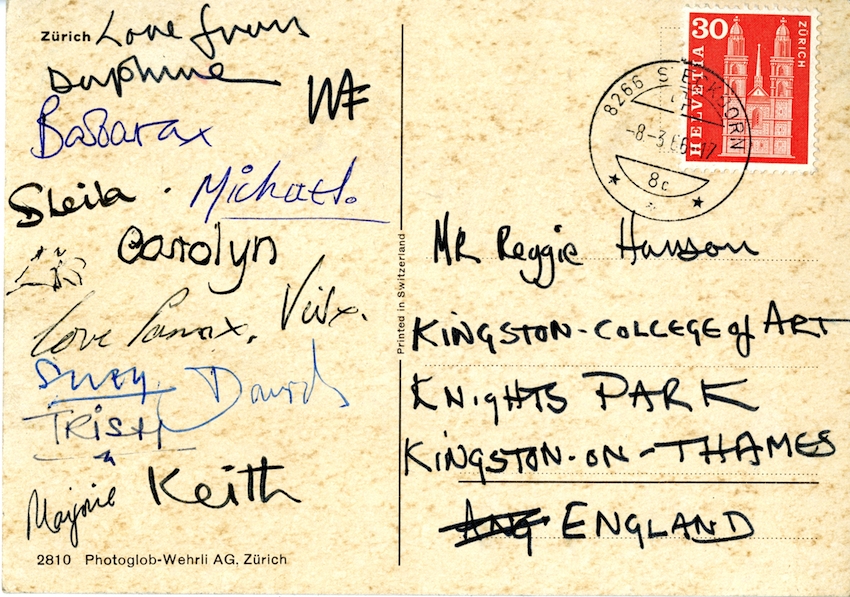 Zürich Love from
Daphne
Barbarax
Sheila . Michael.
Carolyn
Love x. x.
Suzy David
TRISH
Marjorie Keith
2810 Photoglob-Wehrli AG, Zürich
Printed in Switzerland
30
HELVETIA
ZÜRICH
8266 STECKBORN
-8-3.66-17
8c
MR Reggie Hanson
KINGSTON-COLLEGE of ART
KNIGHTS PARK
KINGSTON-ON-THAMES
ENGLAND